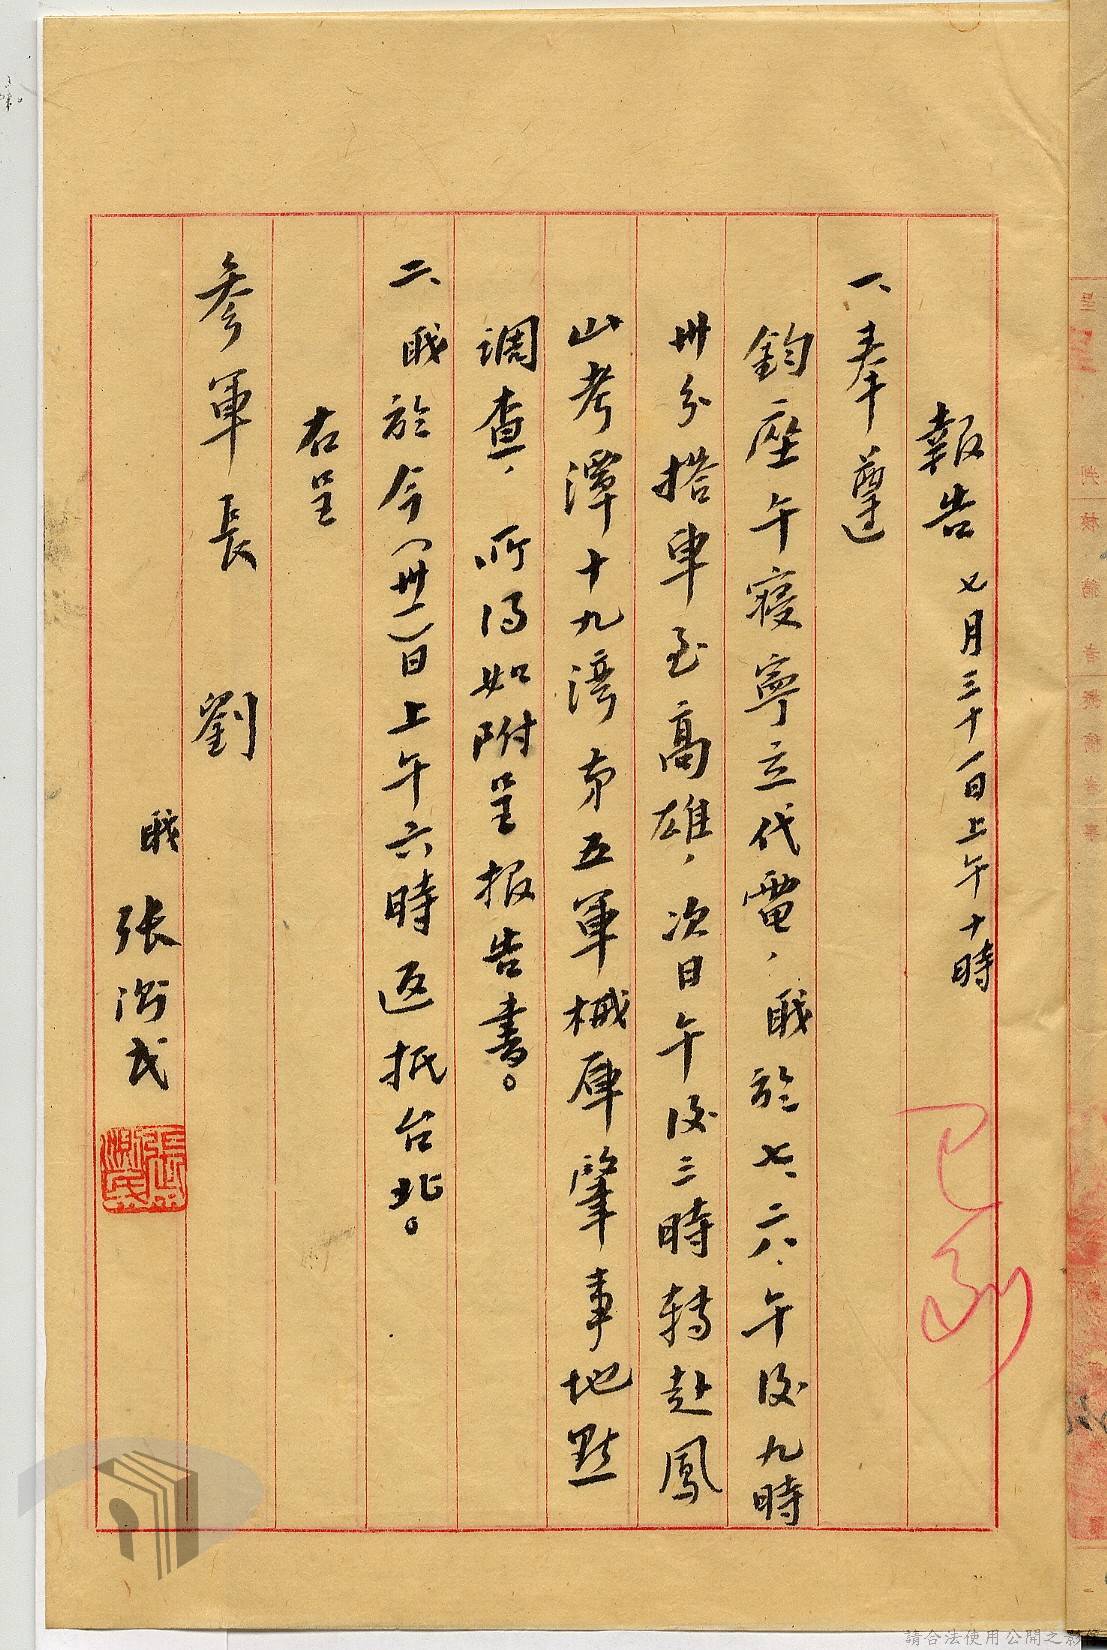 報告 七月三十一日上午十時
一、奉遵
鈞座午寢寧立代電，職於七、二八、午後九時
卅分搭車至高雄，次日午後三時轉赴鳳
山考潭十九灣第五軍械庫肇事地點
調查，所得如附呈報告書。
二、職於今（卅一）日上午六時返抵台北。
右呈
參軍長 劉
職 張 民
請合法使用公開之影像